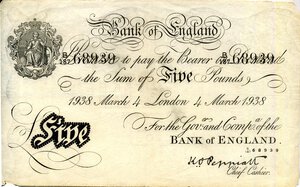 Bank of England
B/157 68939 B/157 68939
to pay the Bearer
the Sum of Five Pounds
1938 March 4 London 4 March 1938
For the Gov.r and Comp.a of the
BANK OF ENGLAND.
Five
68939
K O Peppiatt
Chief Cashier.